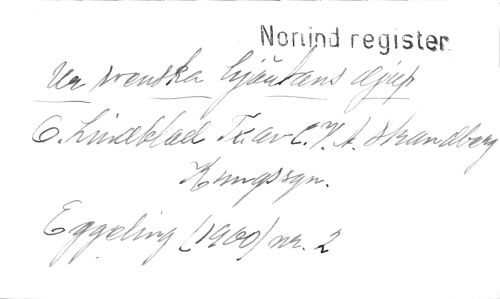 Norlind register
Ur svenska hjärtans djup
O. Lindblad Tx. av C. V. A. Strandberg
Kungssgn.
Eggeling (1960) nr. 2